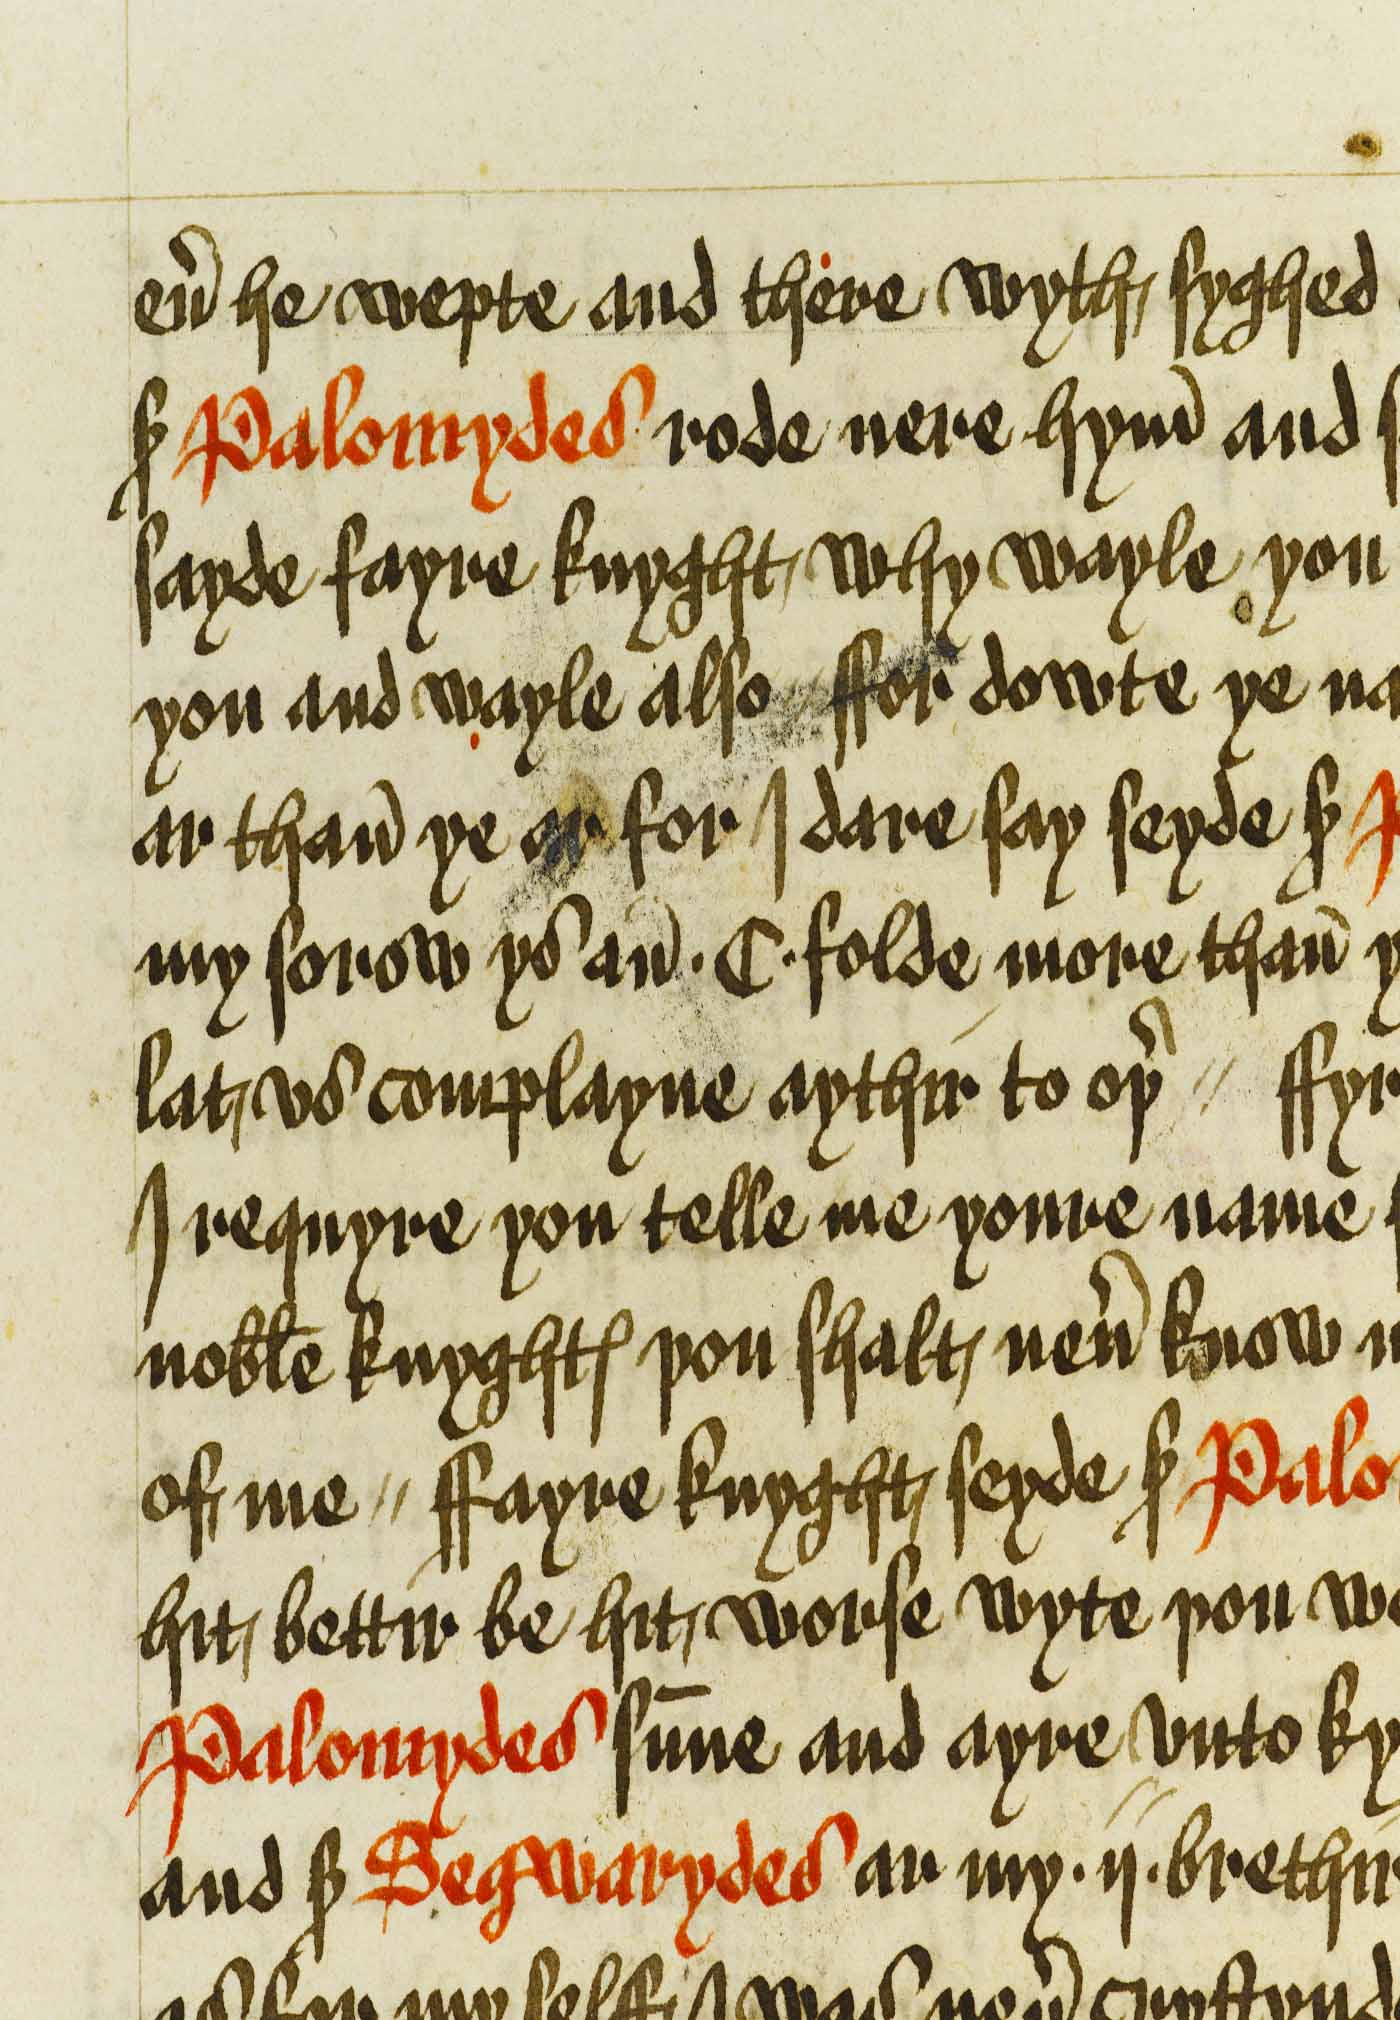 en̄ he wepte and there wyth syghed
sr̄ Palomydes rode nere hym̄ and
sayde fayre knyght why wayle you
you and wayle also // ffor dowte ye na
ar than̄ ye ar for I dare say seyde sr̄ P
my sorow ys an̄ · C · folde more than̄ y
lat vs complayne aythir to oþ̄ // ffyr
I requyre you telle me youre name
noble knyght þou shalt neū know m
of me // ffayre knyght seyde sr̄ Palo
hit bettir be hit worse wyte þou we
Palomydes sūne and ayre vnto ky
and sr̄ Segwarydes ar my · ij · brethir
as for my selff I was neū crystynd